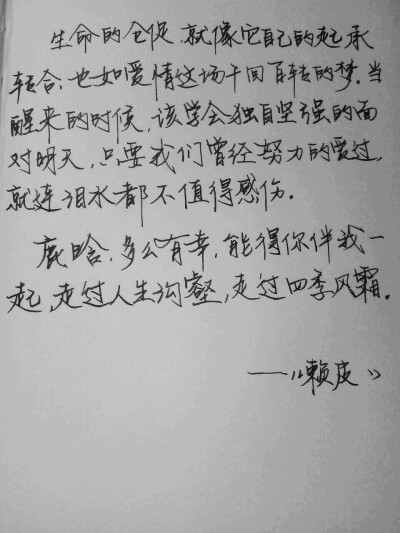 生命的仓促，就像它自己的起承
转合，也如爱情这场千回百转的梦。当
醒来的时候，该学会独自坚强的面
对明天，只要我们曾经努力的爱过，
就连泪水都不值得感伤。
鹿晗，多么有幸，能得你伴我一
起，走过人生沟壑，走过四季风霜。
——《赖皮》